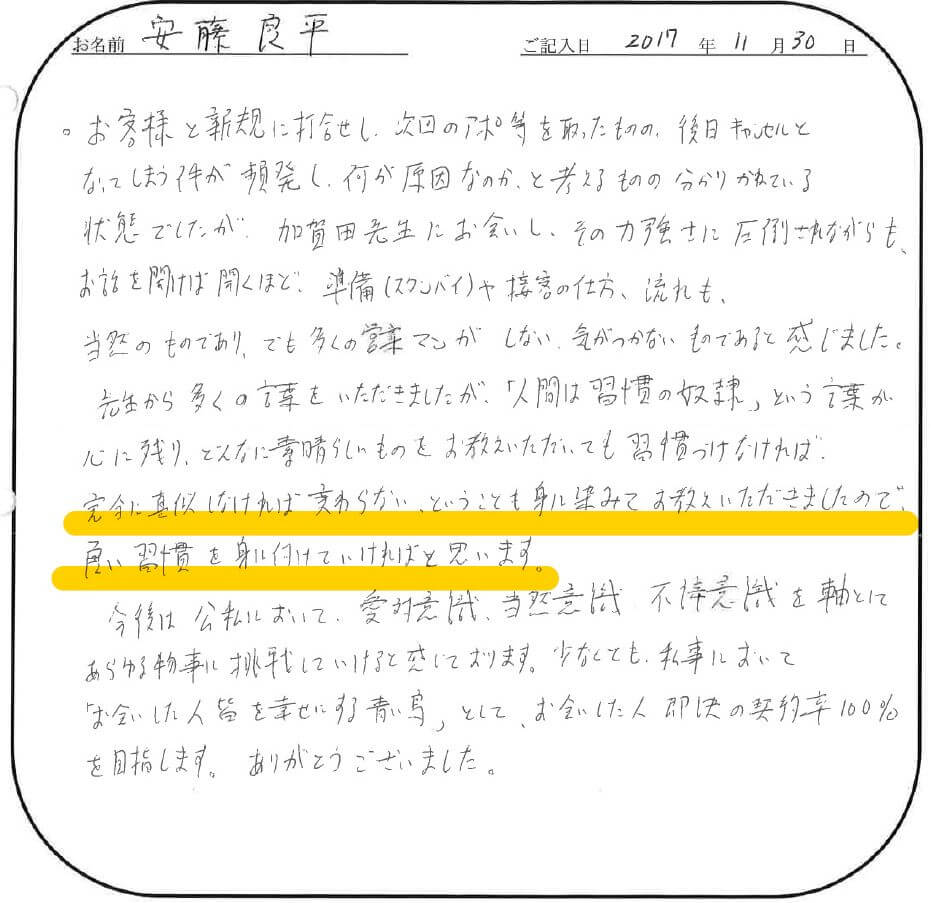 お名前 安藤良平 ご記入日 2017年11月30日
。お客様と新規に打合せし、次回のアポ等を取ったものの、後日キャンセルと
なってしまう件が頻発し、何が原因なのか、と考えるものの分かりかねている
状態でしたが、加賀田先生にお会いし、その力強さに圧倒されながらも、
お話を聞けば聞くほど、準備(スタンバイ)や接客の仕方、流れも、
当然のものであり、でも多くの営業マンがしない、気がつかないものであると感じました。
先生から多くの言葉をいただきましたが、「人間は習慣の奴隷」という言葉が
心に残り、どんなに素晴らしいものをお教えいただいても習慣づけなければ、
完全に真似しなければ変わらない、ということも身に染みてお教えいただきましたので、
良い習慣を身に付けていければと思います。
今後は公私において、絶対意識、当然意識、不憐意識を軸として
あらゆる物事に挑戦していけると感じております。少なくとも、私事において
「お会いした人皆を幸せにする青い鳥」として、お会いした人即決の契約率100%
を目指します。ありがとうございました。